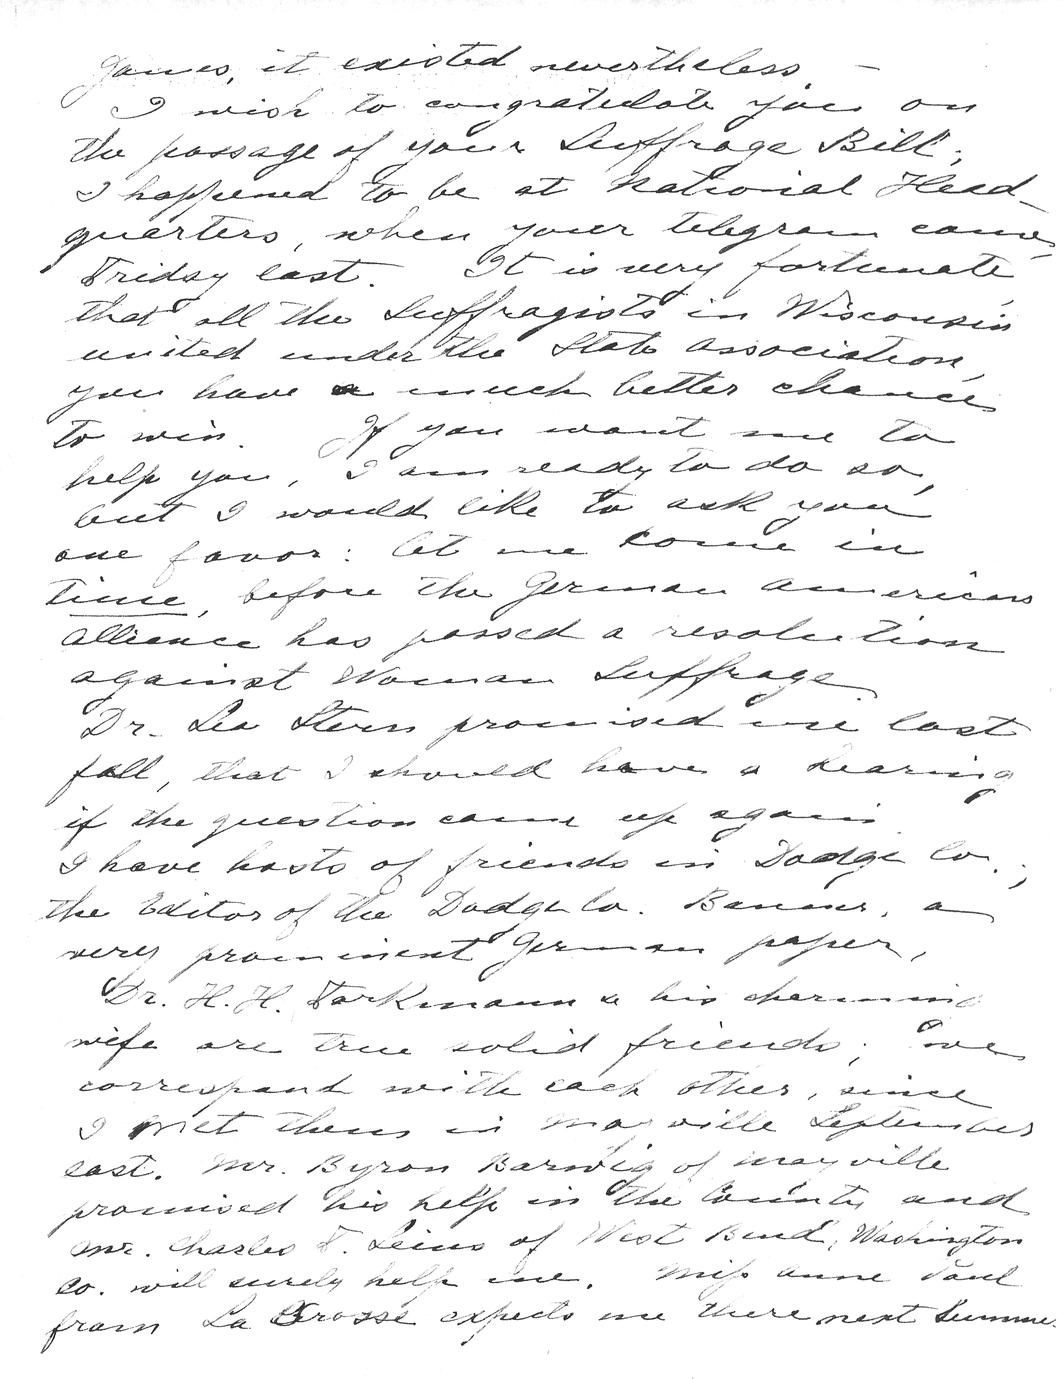 James, it existed nevertheless –
I wish to congratulate you on
the passage of your Suffrage Bill;
I happened to be at National Head-
quarters, when your telegram came,
Friday last. It is very fortunate,
that all the Suffragists in Wisconsin
united under the State Association,
you have a much better chance
to win. If you want me to
help you, I am ready to do so,
but I would like to ask you
one favor: let me come in
time, before the German American
Alliance has passed a resolution
against Woman Suffrage.
Dr. Leo Stern promised me last
fall, that I should have a hearing
if the question came up again.
I have hosts of friends in Dodge Co.;
the Editor of the Dodge Co. Banner, a
very prominent German paper,
Dr. H. H. & his charming
wife are true solid friends; we
correspond with each other, since
I met them in Mayville September
last. Mr. Byron Barwig of Mayville
promised his help in the County and
Mr. Charles F. Leins of West Bend, Washington
Co. will surely help me. Miss Anne Paul
from La Crosse expects me there next Summer.